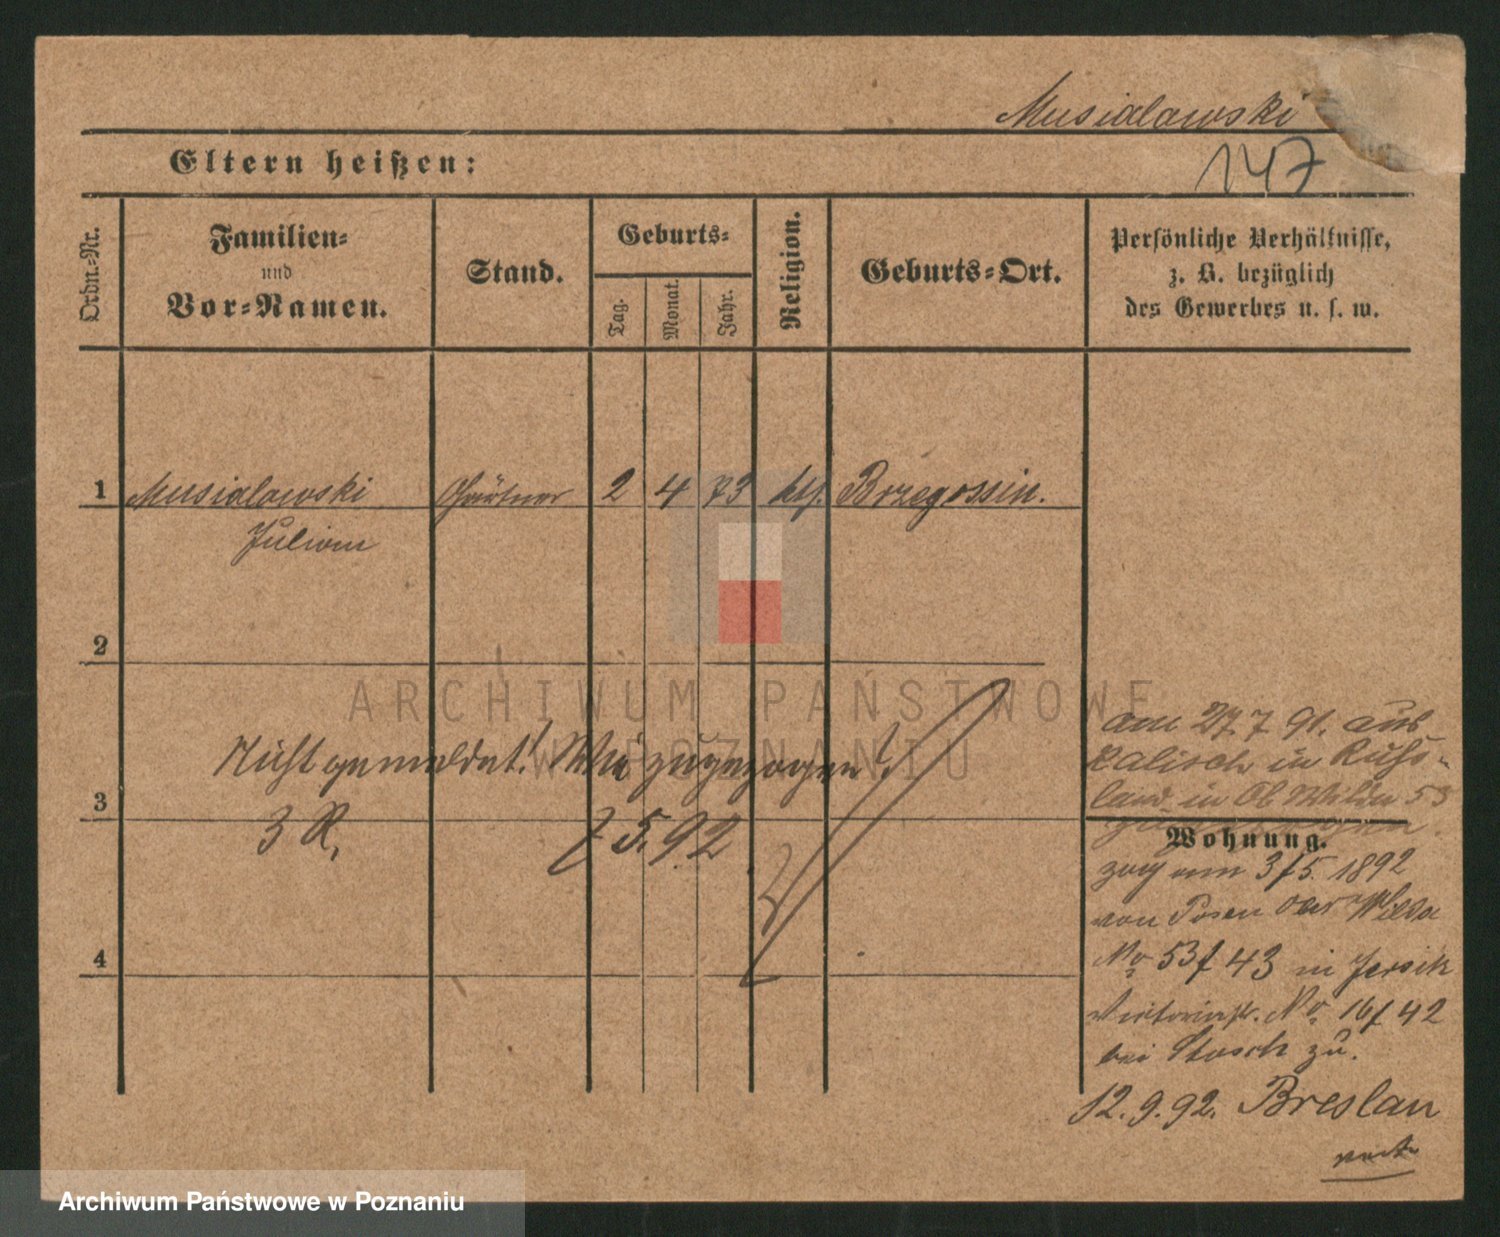 Musialowski
147
Eltern heißen:
Ordn.-Nr.
Familien-
und
Vor-Namen.
Stand.
Geburts-
Tag.
Monat.
Jahr.
Religion.
Geburts-Ort.
Persönliche Verhältnisse,
z. B. bezüglich
des Gewerbes u. s. w.
1 Musialowski Gärtner 2 4 73 kth. Brzegossin.
Julian
2
ARCHIWUM PAŃSTWOWE
W POZNANIU
Nicht gemeldet! Wie zugezogen?
3
3 R,
7 5. 92
4
am 27. 7 91. aus
Kalisch in Russ-
land in Ob Wilda 53
Wohnung.
zog am 3/5. 1892
von Posen Ober Wilda
No 53/43 in Jersitz
Victoriastr. No 16/42
bei Stosch zu.
12. 9. 92. Breslau
Archiwum Państwowe w Poznaniu